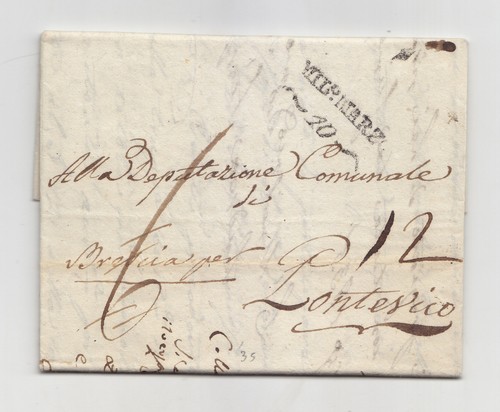 MIL.º MARZ.
10
Alla Deputazione Comunale
di
6
12
Brescia per
Pontevico
35